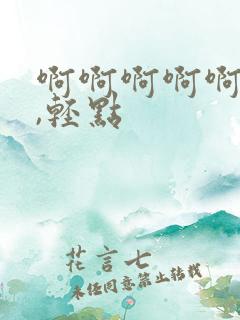 啊啊啊啊啊
,轻點
花言七
未经同意禁止转载